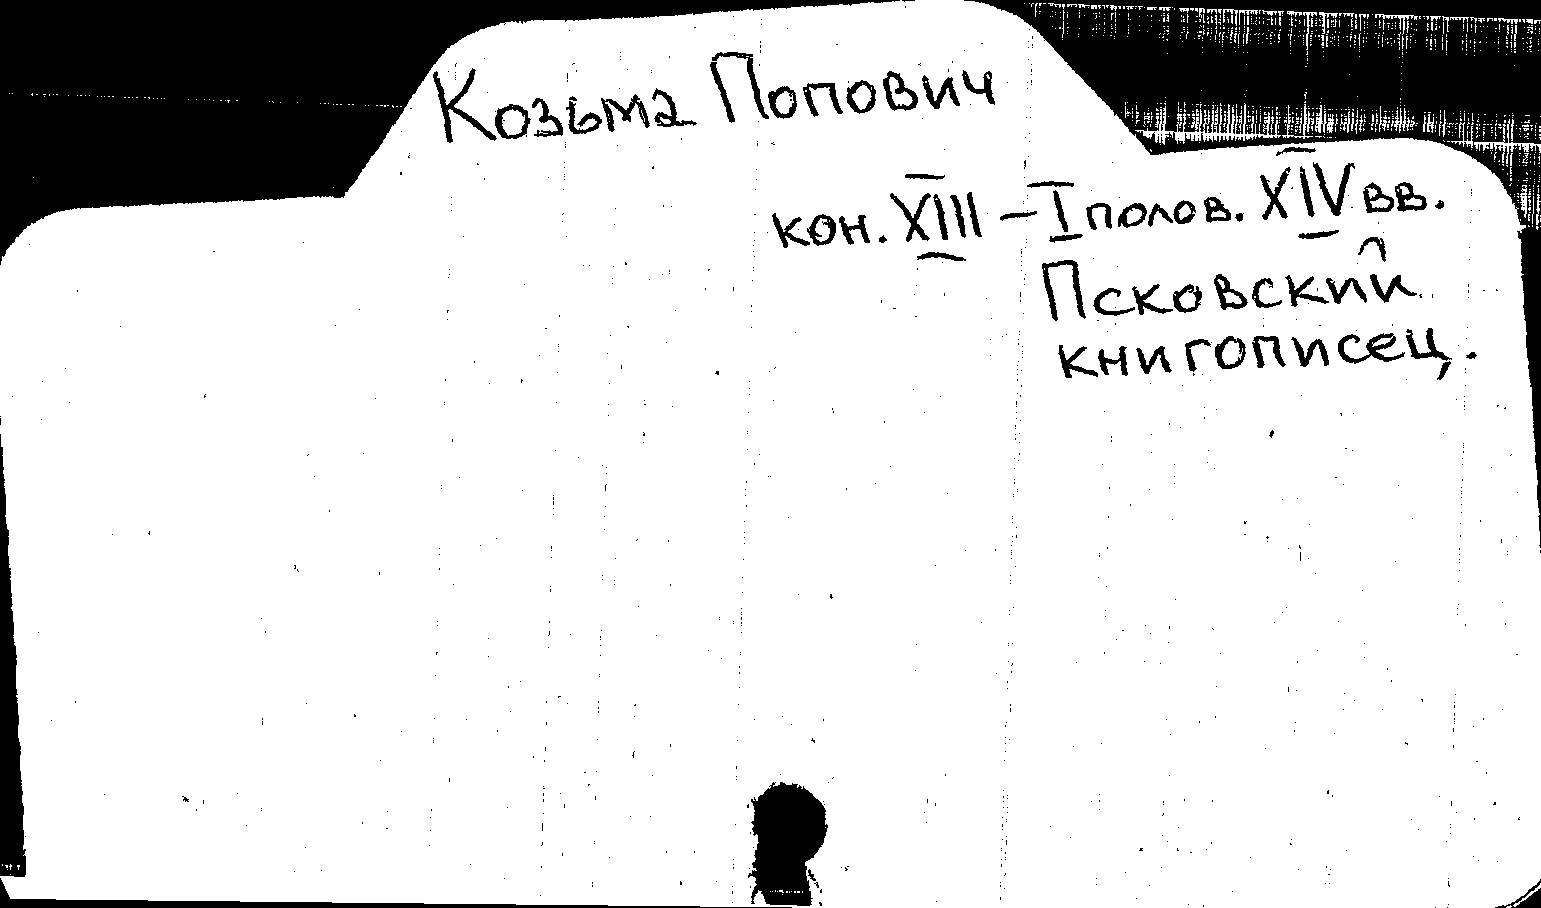 Козьма Попович
кон. XIII – I полов. XIV вв.
Псковский
книгописец.